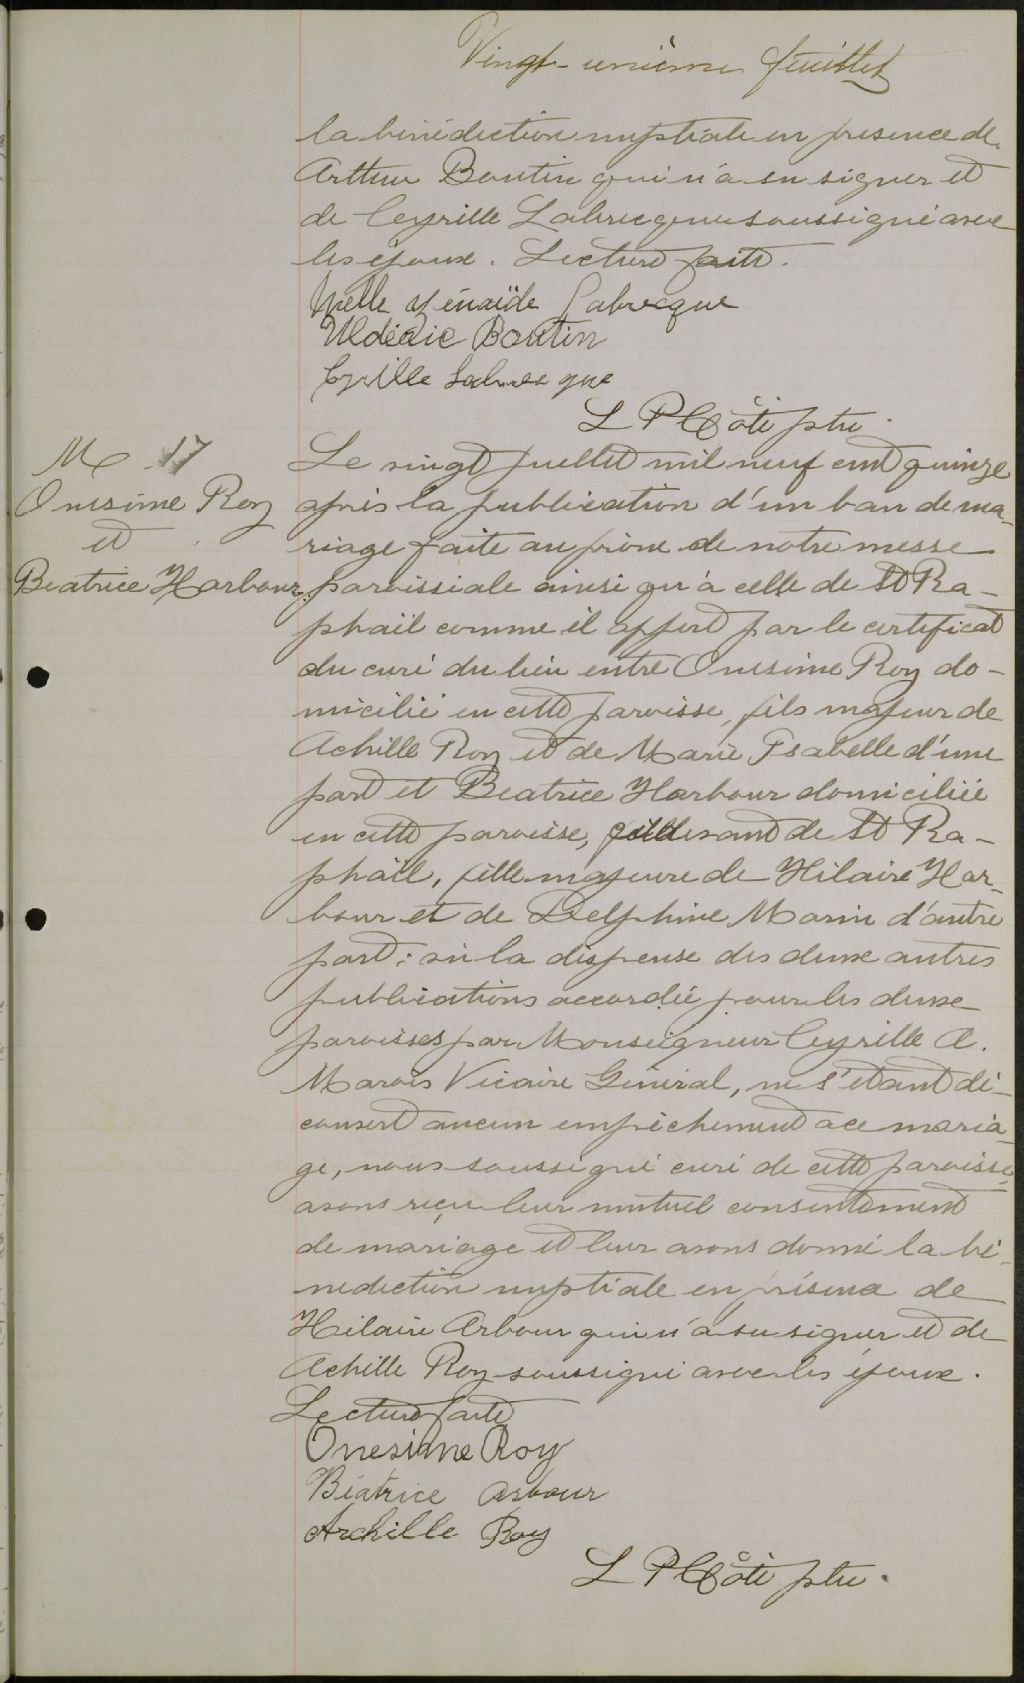 Vingt-unième feuillet
la bénédiction nuptiale en présence de
Arthur Boutin qui n'a su signer et
de Cyrille Labrecque soussigné avec
les époux. Lecture faite.
Melle Zénaïde Labrecque
Médéric Boutin
Cyrille Labrecque
L P Côté ptre.
M 17
Onesime Roy
et
Beatrice Harbour.
Le vingt juillet mil neuf cent quinze
après la publication d'un ban de ma-
riage faite au prône de notre messe
paroissiale ainsi qu'à celle de St Ra-
phaël comme il appert par le certificat
du curé du lieu entre Onesime Roy do-
micilié en cette paroisse, fils majeur de
Achille Roy et de Marie Isabelle d'une
part et Beatrice Harbour domiciliée
en cette paroisse, de St Ra-
phaël, fille majeure de Hilaire Har-
bour et de Delphine Morin d'autre
part; vu la dispense des deux autres
publications accordée pour les deux
paroisses par Monseigneur Cyrille A.
Marois Vicaire Général, ne s'étant dé-
couvert aucun empêchement à ce maria-
ge, nous soussigné curé de cette paroisse
avons reçu leur mutuel consentement
de mariage et leur avons donné la bé-
nédiction nuptiale en présence de
Hilaire Arbour qui n'a su signer et de
Achille Roy soussigné avec les époux.
Lecture faite
Onesime Roy
Béatrice Arbour
Archille Roy
L P Côté ptre.